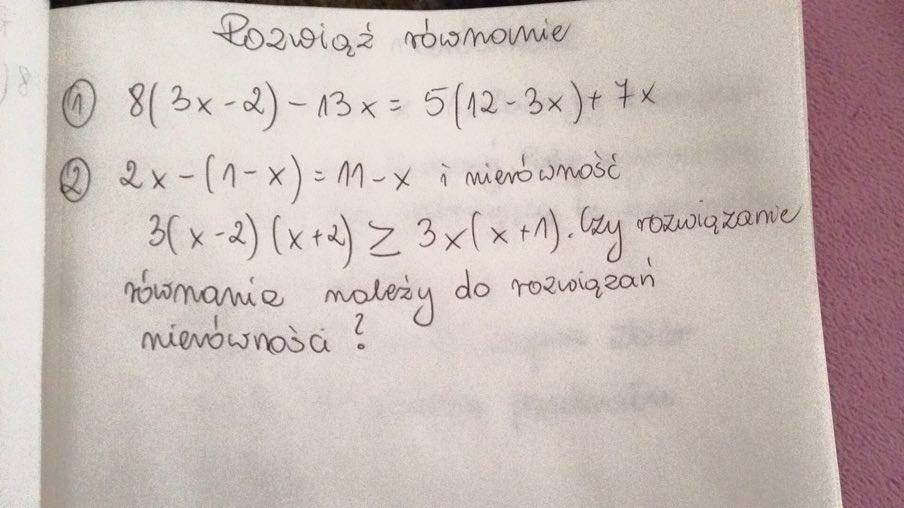 Rozwiąż równanie
① 8(3x-2)-13x = 5(12-3x)+7x
② 2x-(1-x)=11-x i nierówność
3(x-2)(x+2) ≥ 3x(x+1). Czy rozwiązanie
równania należy do rozwiązań
nierówności?